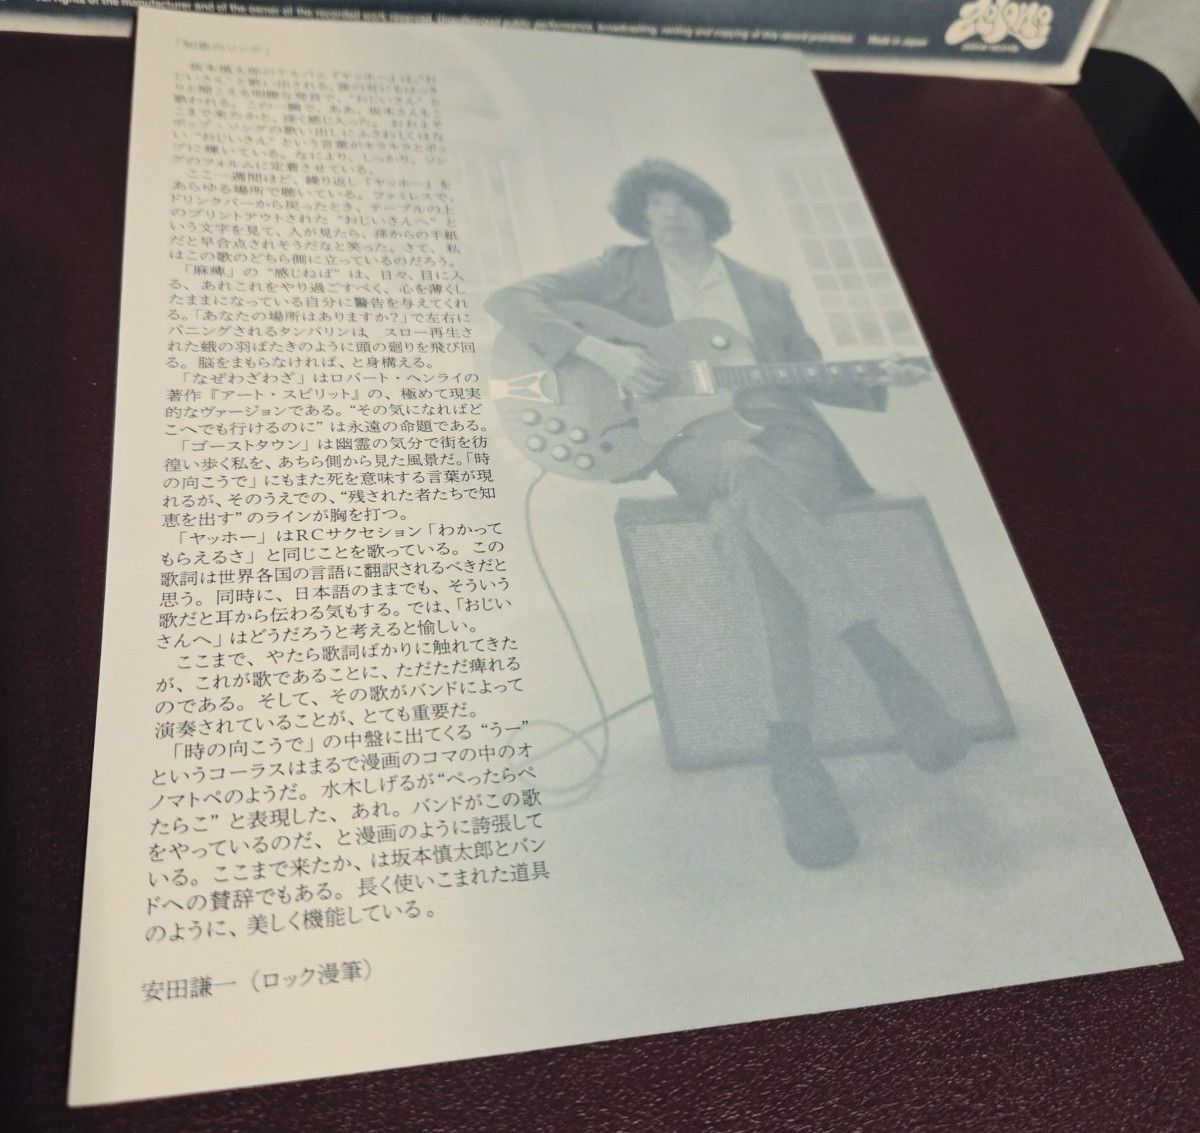 All rights of the manufacturer and of the owner of the recorded work reserved. Unauthorized public performance, broadcasting, renting and copying of this record prohibited. Made in Japan
zelone records
坂本慎太郎のアルバム『ヤッホー』は、“お
じいさん”と歌い出される。
りと聞こえる明瞭な発音で、“おじいさん”と
歌われる。この一瞬で、ああ、坂本さんもこ
こまで来たかと、深く感じ入った。おおよそ
ポップ・ソングの歌い出しにふさわしくはな
い“おじいさん”という言葉がキラキラとポッ
プに輝いている。なにより、しっかり、ソン
グのフォルムに定着させている。
ここ一週間ほど、繰り返し『ヤッホー』を
あらゆる場所で聴いている。ファミレスで、
ドリンクバーから戻ったとき、テーブルの上
のプリントアウトされた“おじいさんへ”と
いう文字を見て、人が見たら、孫からの手紙
だと早合点されそうだなと笑った。さて、私
はこの歌のどちら側に立っているのだろう。
「麻痺」の“感じねば”は、日々、目に入
る、あれこれをやり過ごすべく、心を薄くし
たままになっている自分に警告を与えてくれ
る。「あなたの場所はありますか?」で左右に
パニングされるタンバリンは、スロー再生さ
れた蛾の羽ばたきのように頭の廻りを飛び回
る。脳をまもらなければ、と身構える。
「なぜわざわざ」はロバート・ヘンライの
著作『アート・スピリット』の、極めて現実
的なヴァージョンである。“その気になればど
こへでも行けるのに”は永遠の命題である。
「ゴーストタウン」は幽霊の気分で街を彷
徨い歩く私を、あちら側から見た風景だ。「時
の向こうで」にもまた死を意味する言葉が現
れるが、そのうえでの、“残された者たちで知
恵を出す”のラインが胸を打つ。
「ヤッホー」はRCサクセション「わかって
もらえるさ」と同じことを歌っている。この
歌詞は世界各国の言語に翻訳されるべきだと
思う。同時に、日本語のままでも、そういう
歌だと耳から伝わる気もする。では、「おじい
さんへ」はどうだろうと考えると愉しい。
ここまで、やたら歌詞ばかりに触れてきた
が、これが歌であることに、ただただ痺れる
のである。そして、その歌がバンドによって
演奏されていることが、とても重要だ。
「時の向こうで」の中盤に出てくる“うー”
というコーラスはまるで漫画のコマの中のオ
ノマトペのようだ。水木しげるが“ぺったらぺ
たらこ”と表現した、あれ。バンドがこの歌
をやっているのだ、と漫画のように誇張して
いる。ここまで来たか、は坂本慎太郎とバン
ドへの賛辞でもある。長く使いこまれた道具
のように、美しく機能している。
安田謙一(ロック漫筆)